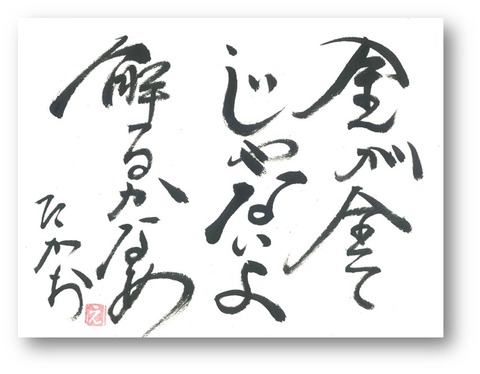 金が全て
じゃないよ
解るかなあ
たかお
え